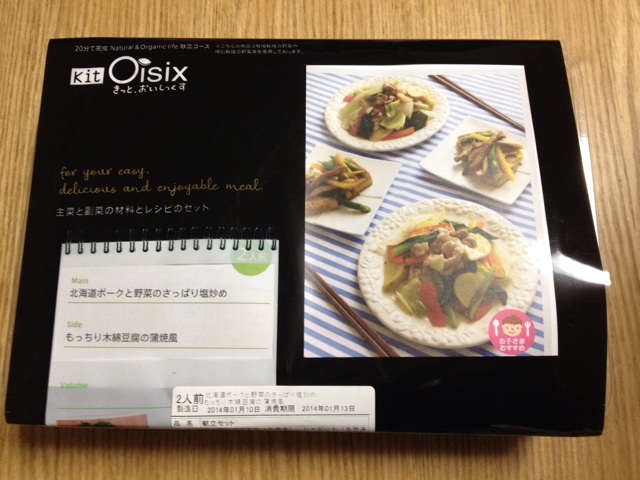 20分で完成 Natural & Organic life 献立コース
Kit Oisix
きっと、おいしっくす
for your easy,
delicious and enjoyable meal.
主菜と副菜の材料とレシピのセット
2人前
Main
北海道ポークと野菜のさっぱり塩炒め
Side
もっちり木綿豆腐の蒲焼風
Volume
お子さま
おすすめ
2人前 北海道ポークと野菜のさっぱり塩炒め
もっちり木綿豆腐の蒲焼風
製造日 2014年01月10日 消費期限 2014年01月13日
品 名 献立セット